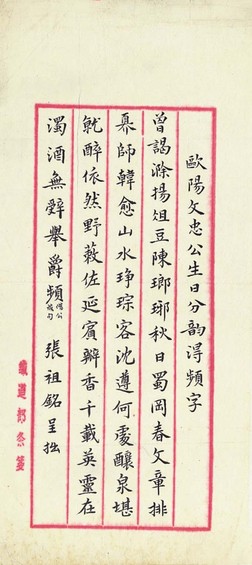 歐陽文忠公生日分韵淂頻字
曾謁滁揚俎豆陳瑯琊秋日蜀岡春文章排
奡師韓愈山水琤琮客沈遵何處釀泉堪
就醉依然野蔌佐延賓瓣香千載英靈在
濁酒無辭舉爵頻借公成句 張祖銘呈拙
鐵道部箋